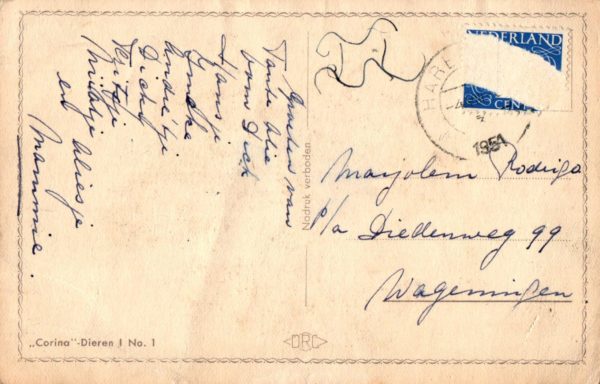 Groeten van
Tante Alie
oom Dick
Hansje
Ineke
Dicky
Fritsje
Aliesje
en Mammie.
Nadruk verboden
NEDERLAND
CENT
HARE
1951
Marjolein Rodriga
p/a Diedenweg 99
Wageningen.
„Corina"-Dieren I No. 1
DRC